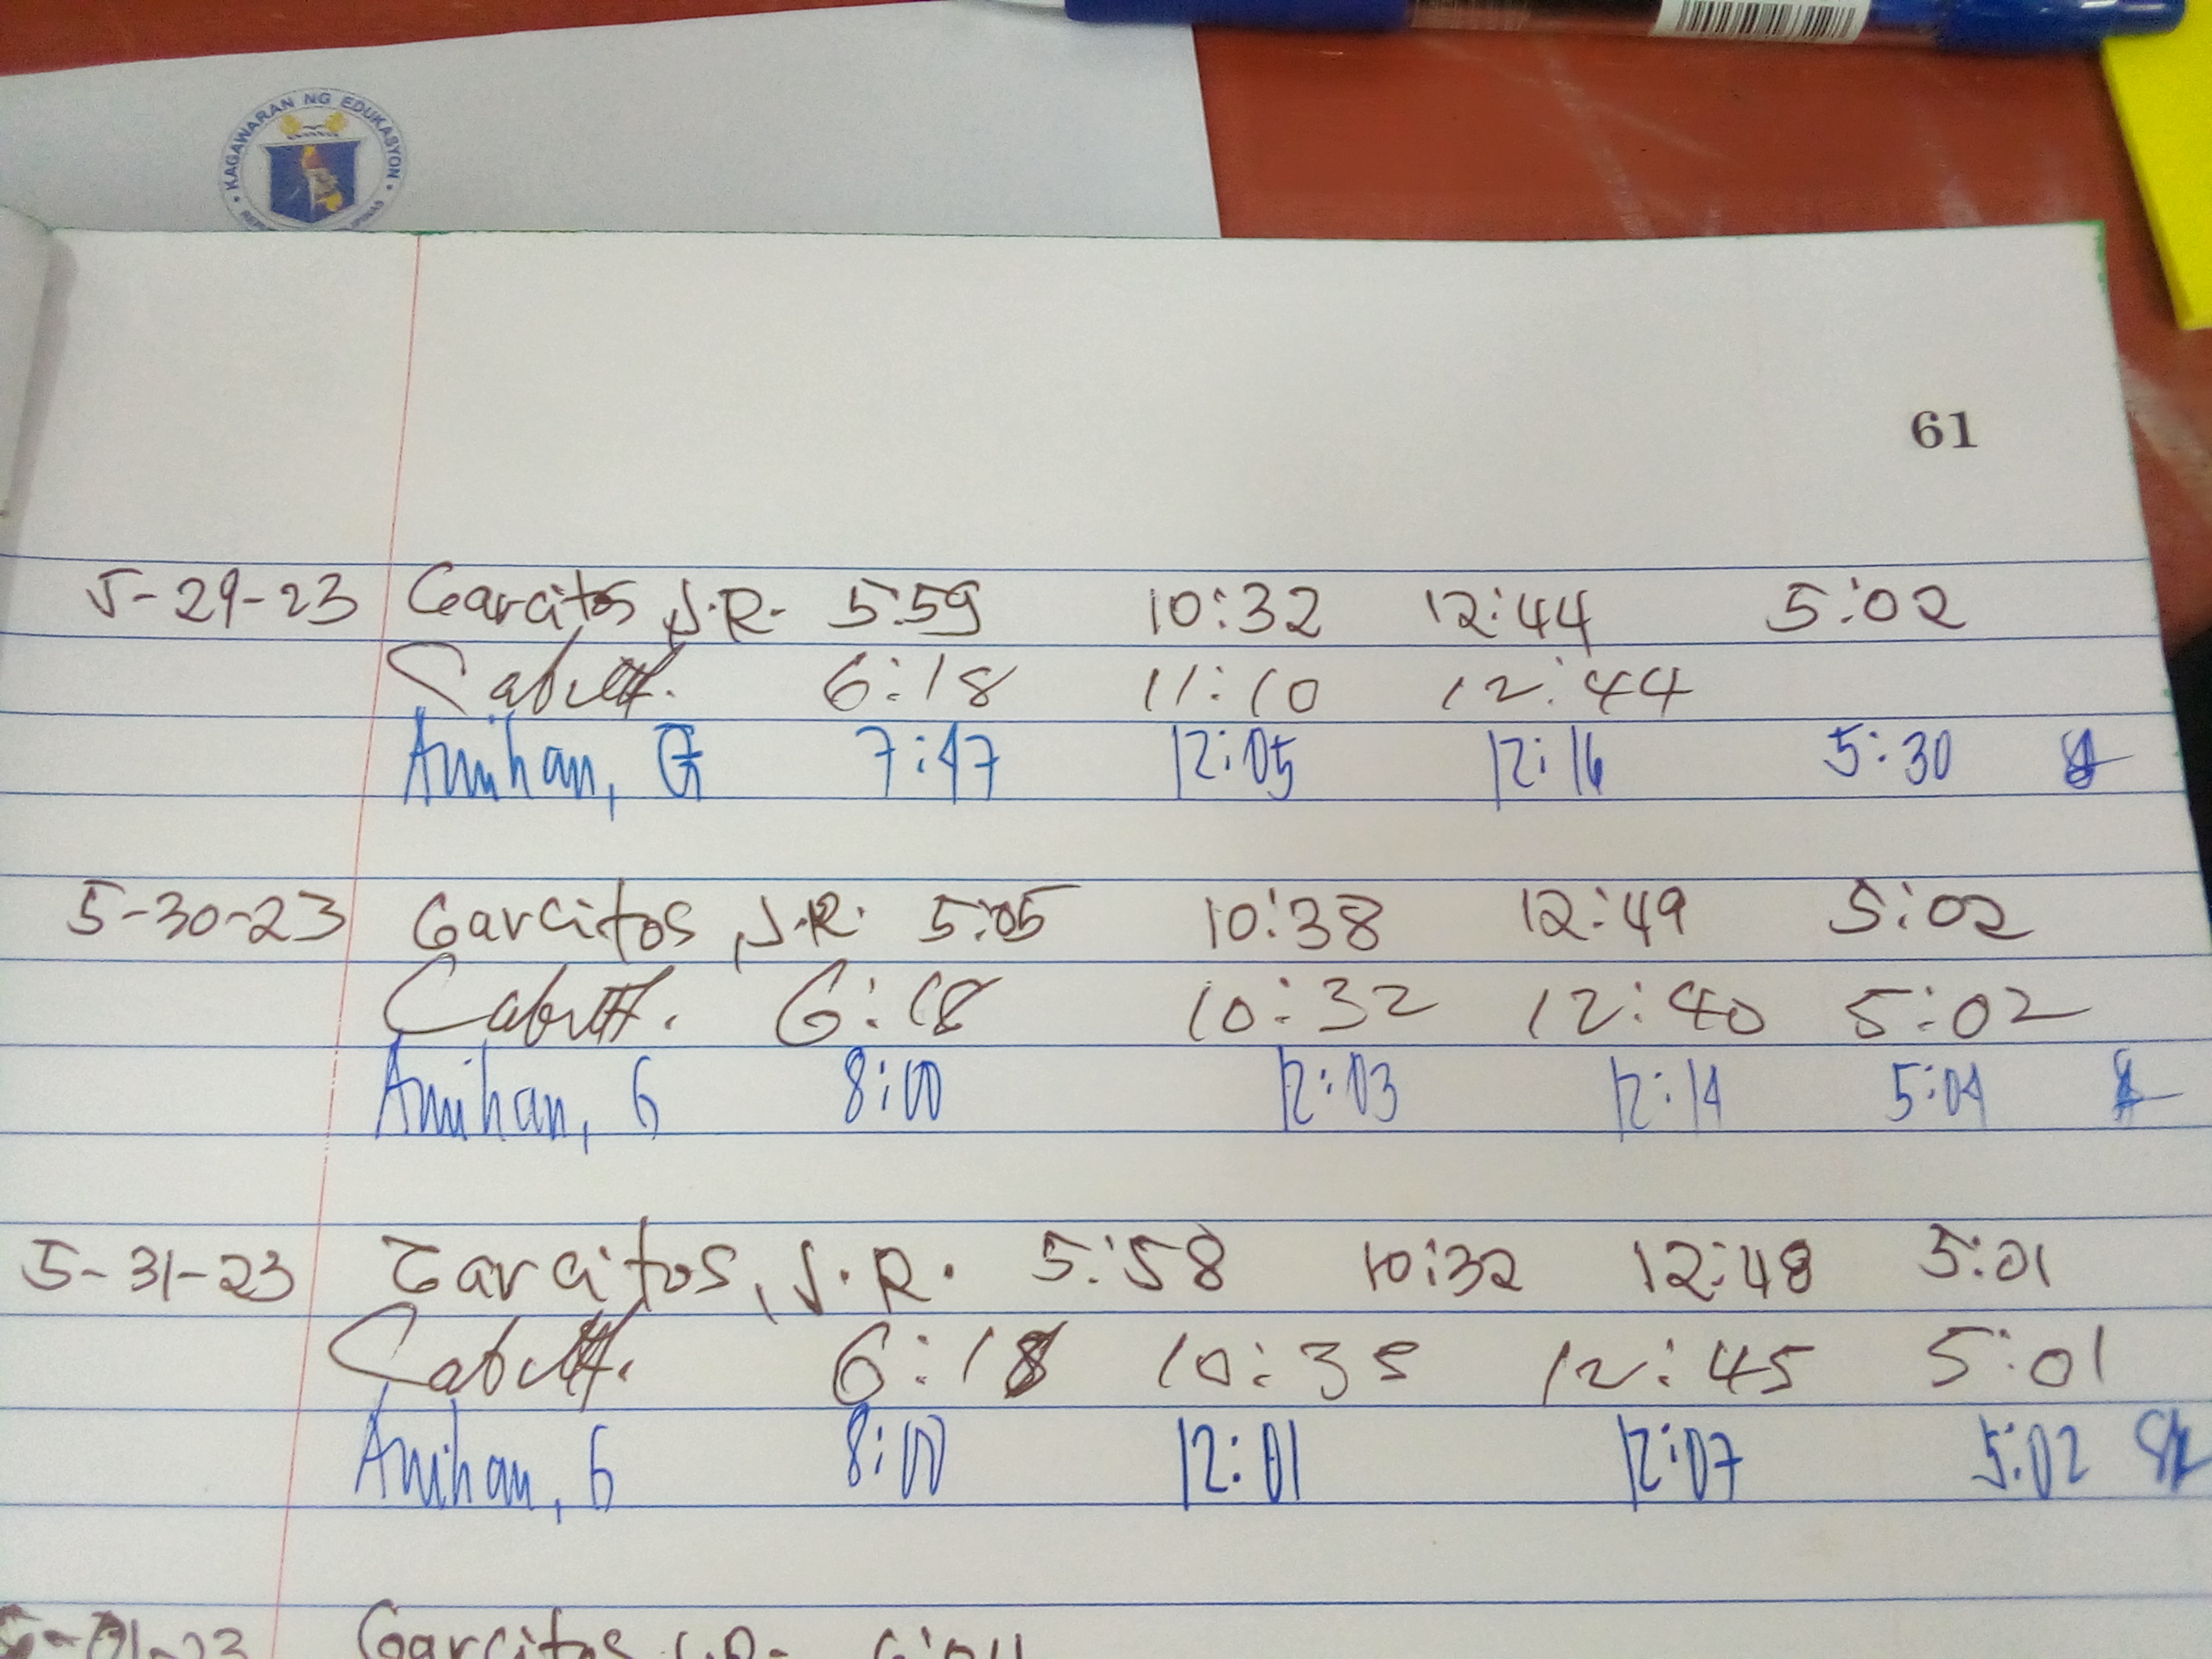 KAGAWARAN NG EDUKASYON
61
5-29-23 Garcitos, J.R. 5:59 10:32 12:44 5:02
6:18 11:10 12:44
Amihan, G 7:47 12:05 12:16 5:30
5-30-23 Garcitos, J.R. 5:05 10:38 12:49 5:02
6:18 10:32 12:40 5:02
Amihan, G 8:00 12:03 12:14 5:04
5-31-23 Garcitos, J.R. 5:58 10:32 12:48 5:01
6:18 10:35 12:45 5:01
Amihan, G 8:00 12:01 12:07 5:02
Garcitos J.R.